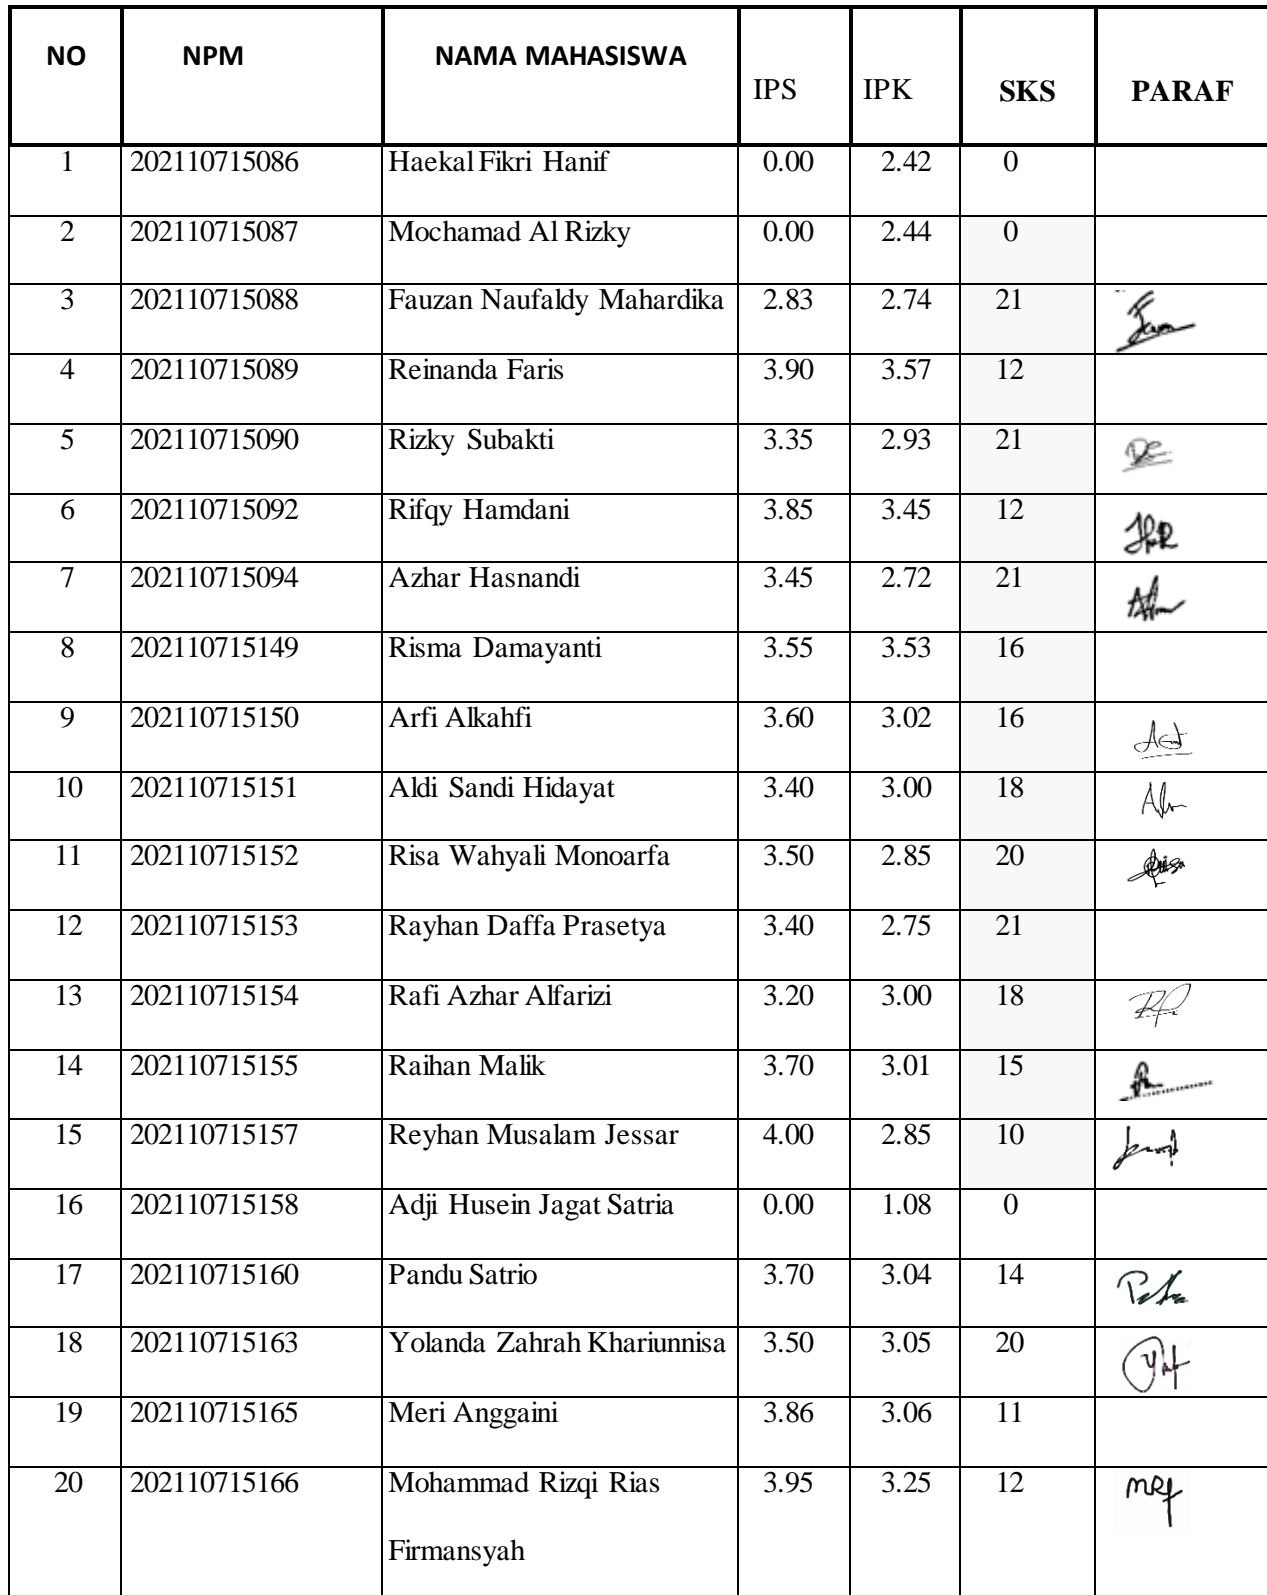 NO NPM NAMA MAHASISWA IPS IPK SKS PARAF
1 202110715086 Haekal Fikri Hanif 0.00 2.42 0
2 202110715087 Mochamad Al Rizky 0.00 2.44 0
3 202110715088 Fauzan Naufaldy Mahardika 2.83 2.74 21
4 202110715089 Reinanda Faris 3.90 3.57 12
5 202110715090 Rizky Subakti 3.35 2.93 21
6 202110715092 Rifqy Hamdani 3.85 3.45 12
7 202110715094 Azhar Hasnandi 3.45 2.72 21
8 202110715149 Risma Damayanti 3.55 3.53 16
9 202110715150 Arfi Alkahfi 3.60 3.02 16
10 202110715151 Aldi Sandi Hidayat 3.40 3.00 18
11 202110715152 Risa Wahyali Monoarfa 3.50 2.85 20
12 202110715153 Rayhan Daffa Prasetya 3.40 2.75 21
13 202110715154 Rafi Azhar Alfarizi 3.20 3.00 18
14 202110715155 Raihan Malik 3.70 3.01 15
15 202110715157 Reyhan Musalam Jessar 4.00 2.85 10
16 202110715158 Adji Husein Jagat Satria 0.00 1.08 0
17 202110715160 Pandu Satrio 3.70 3.04 14
18 202110715163 Yolanda Zahrah Khariunnisa 3.50 3.05 20
19 202110715165 Meri Anggaini 3.86 3.06 11
20 202110715166 Mohammad Rizqi Rias 3.95 3.25 12
Firmansyah